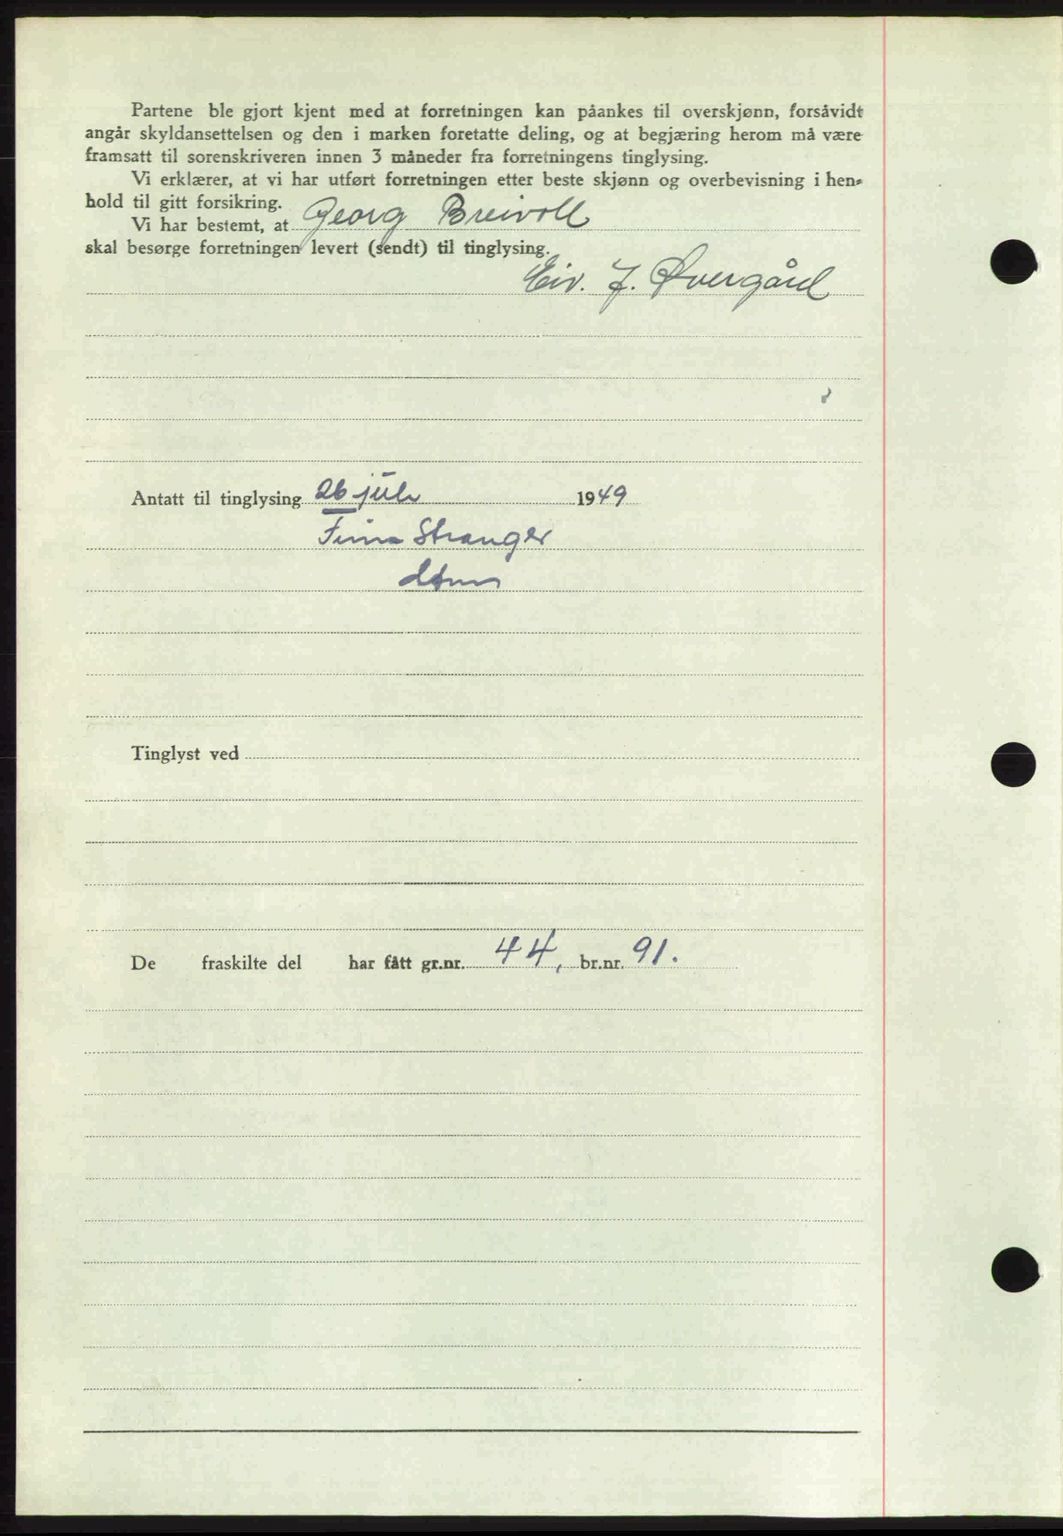 Partene ble gjort kjent med at forretningen kan påankes til overskjønn, forsåvidt
angår skyldansettelsen og den i marken foretatte deling, og at begjæring herom må være
framsatt til sorenskriveren innen 3 måneder fra forretningens tinglysing.
Vi erklærer, at vi har utført forretningen etter beste skjønn og overbevisning i hen-
hold til gitt forsikring.
Vi har bestemt, at Georg Breivoll
skal besørge forretningen levert (sendt) til tinglysing.
Eiv. J. Øvergård
Antatt til tinglysing 26 juli 1949
Stranger
Tinglyst ved
De fraskilte del har fått gr.nr. 44, br.nr. 91.